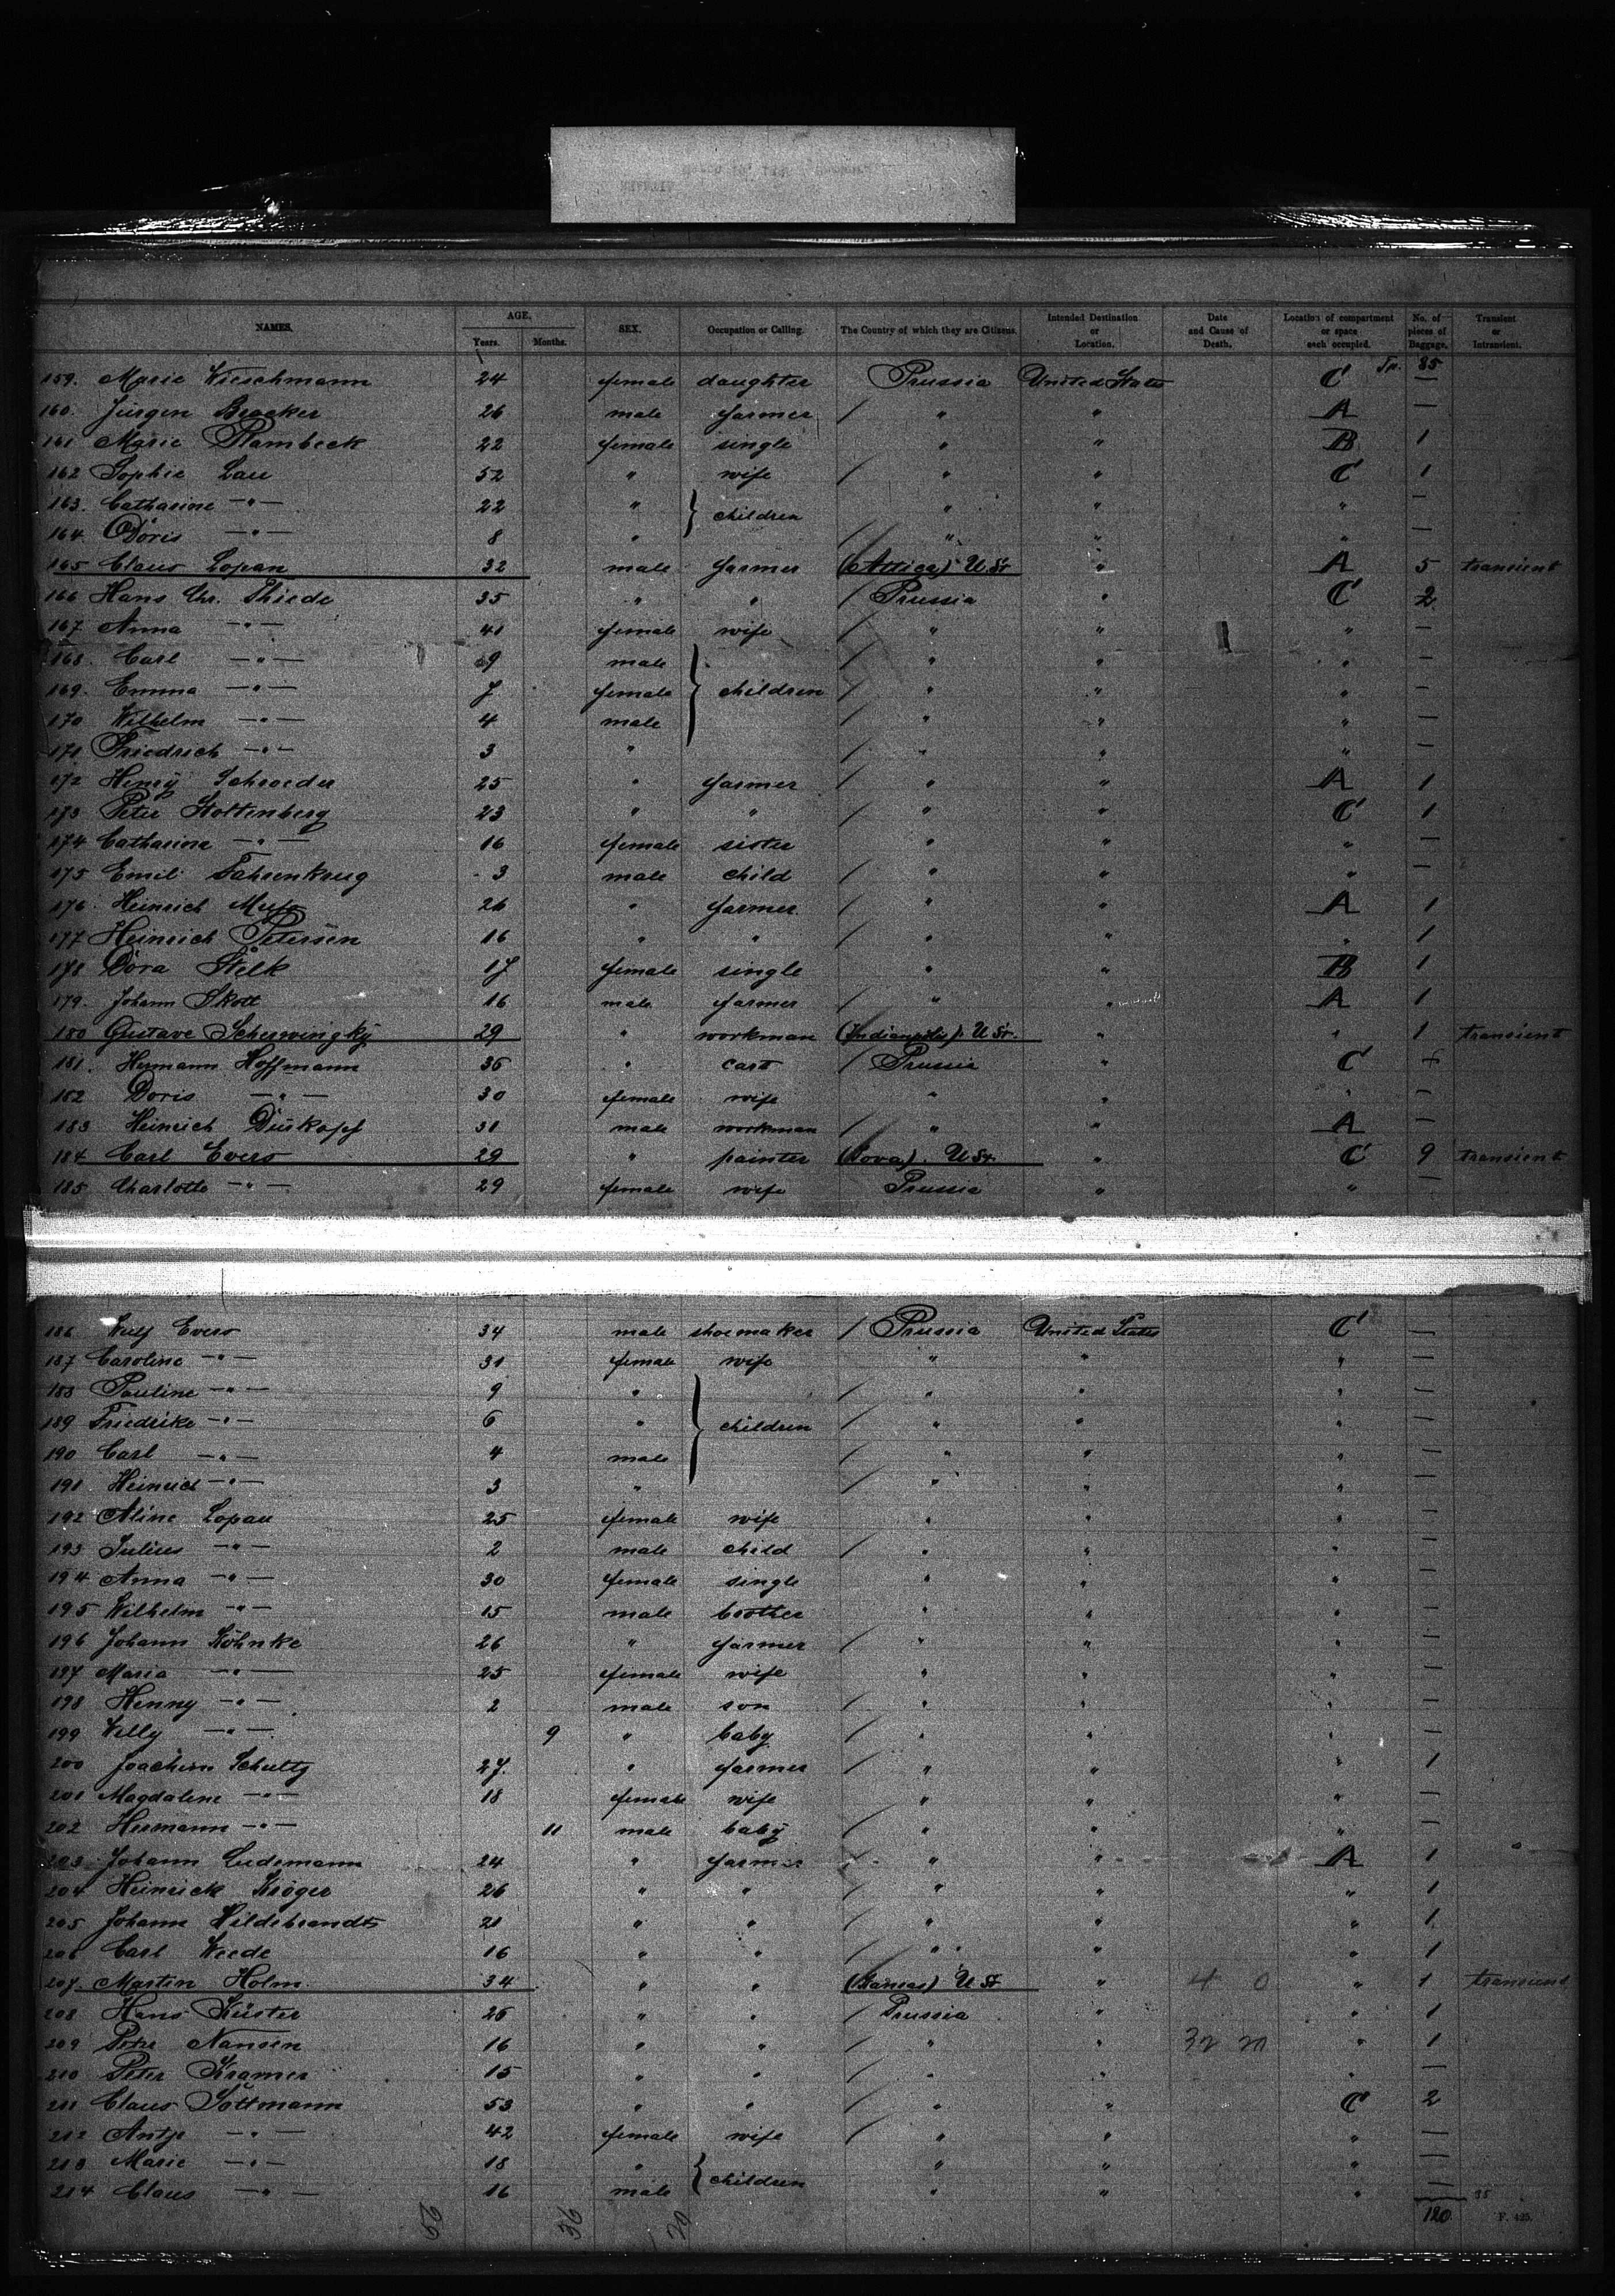 NAMES. AGE. Years. Months. SEX. Occupation or Calling. The Country of which they are Citizens. Intended Destination or Location. Date and Cause of Death. Location of compartment or space each occupied. No. of pieces of Baggage. Transient or Intransient.
Tr. 85
159. Marie Wieschmann 24 female daughter Prussia United States C —
160. Jürgen Broeker 26 male farmer / " " A —
161 Marie Plambeck 22 female single " " B 1
162 Sophie Lau 52 " wife / " " C 1
163. Catharine —"— 22 " } children " " " —
164. Doris —"— 8 " / " " " —
165 Claus Lopau 32 male farmer (Attica) U St " A 5 transient
166 Hans Chr. Thiede 35 " " / Prussia " C 2
167. Anna —"— 41 female wife / " " " —
168. Carl —"— 9 male / " " " —
169. Emma —"— 7 female } children / " " " —
170 Wilhelm —"— 4 male / " " " —
171. Friedrich —"— 3 " / " " " —
172 Henry Schroeder 25 " farmer / " " A 1
173 Peter Stoltenberg 23 " " / " " C 1
174 Catharina —"— 16 female sister " " " —
175 Emil Fahrenkrug 3 male child / " " " —
176. Heinrich 26 " farmer. / " " A 1
177 Heinrich Petersen 16 " " / " " " 1
178 Dora Stelk 17 female single " " B 1
179. Johann Skott 16 male farmer / " " A 1
180 Gustave Scherwingky 29 " workman (Indianpolis). U St. " " 1 transient
181. Hermann Hoffmann 36 " cart / Prussia " C +
182 Doris —"— 30 female wife " " " —
183 Heinrich Dürkopf 31 male workman / " " A —
184 Carl Evers 29 " painter (Iova). U St. " C 9 transient
185 Charlotte —"— 29 female wife Prussia " " —
186 Wulf Evers 34 male shoemaker / Prussia United States C —
187 Caroline —"— 31 female wife " " " —
188 Pauline —"— 9 " / " " " —
189 Friedrike —"— 6 " } children / " " " —
190 Carl —"— 4 male / " " " —
191 Heinrich —"— 3 " / " " " —
192 Aline Lopau 25 female wife " " " —
193 Julius —"— 2 male child / " " " —
194 Anna —"— 30 female single " " " —
195 Wilhelm —"— 15 male brother " " " —
196 Johann Köhnke 26 " farmer / " " " —
197 Maria —"— 25 female wife " " " —
198 Henny —"— 2 male son / " " " —
199 Willy —"— 9 " baby / " " " —
200 Joachim Schultz 27. " farmer / " " " 1
201 Magdalene —"— 18 female wife " " " —
202 Hermann —"— 11 male baby / " " " —
203 Johann Ludemann 24 " farmer / " " A 1
204 Heinrich Kröger 26 " " / " " " 1
205 Johann Hildebrandt 21 " " / " " " 1
206 Carl Weede 16 " " / " " " 1
207. Martin Holm. 34 " " (Kansas) U St. " 4 0 " 1 transient
208 Hans Küster 26 " " / Prussia " " 1
209 Peter Nansen 16 " " / " " 32 20 " 1
210 Peter Kramer 15 " " / " " " —
211 Claus Söttmann 53 " " / " " C 2
212 Antje —"— 42 female wife / " " " —
213 Marie —"— 18 " { children " " " —
214 Claus —"— 16 male " " " —
35
120 F. 425.
56 36 20